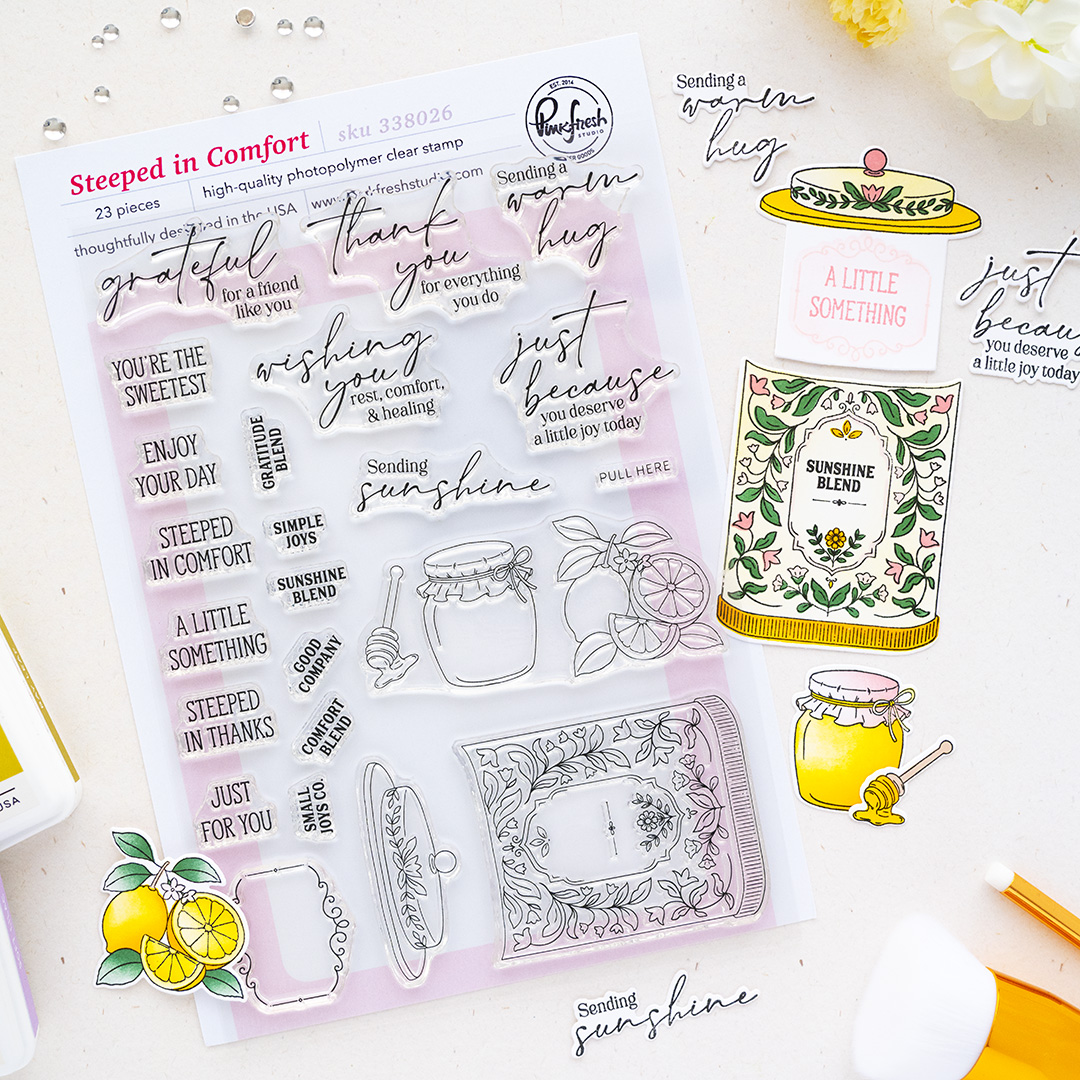 Steeped in Comfort
sku 338026
EST. 2014
Pinkfresh
STUDIO
23 pieces
high-quality photopolymer clear stamp
thoughtfully designed in the USA
grateful
for a friend
like you
thank
you
for everything
you do
Sending a
warm
hug
YOU'RE THE
SWEETEST
wishing
you
rest, comfort,
& healing
just
because
you deserve
a little joy today
ENJOY
YOUR DAY
GRATITUDE
BLEND
Sending
sunshine
PULL HERE
STEEPED
IN COMFORT
SIMPLE
JOYS
SUNSHINE
BLEND
A LITTLE
SOMETHING
GOOD
COMPANY
STEEPED
IN THANKS
COMFORT
BLEND
JUST
FOR YOU
SMALL
JOYS CO.
Sending a
warm
hug
A LITTLE
SOMETHING
just
becau
you deserve
a little joy today
SUNSHINE
BLEND
Sending
sunshine
USA